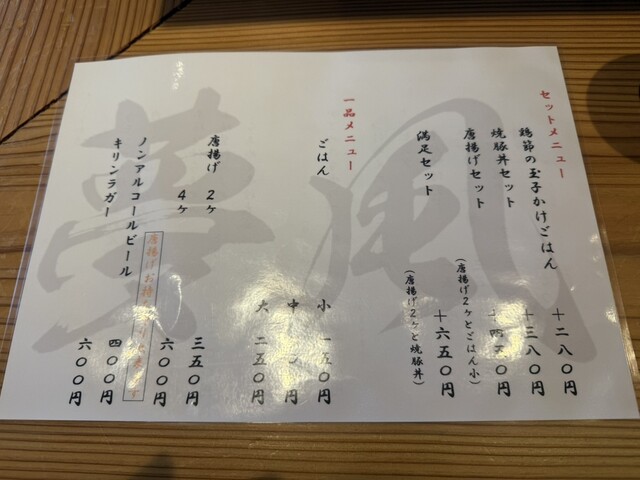 風夢
セットメニュー
鶏節の玉子かけごはん +二八〇円
焼豚丼セット +三八〇円
唐揚げセット +四五〇円
(唐揚げ2ヶとごはん小)
満足セット +六五〇円
(唐揚げ2ヶと焼豚丼)
一品メニュー
ごはん 小 一五〇円
中 円
大 二五〇円
唐揚げ 2ヶ 三五〇円
4ヶ 六〇〇円
唐揚げお持ち帰り出来ます
ノンアルコールビール 四〇〇円
キリンラガー 六〇〇円